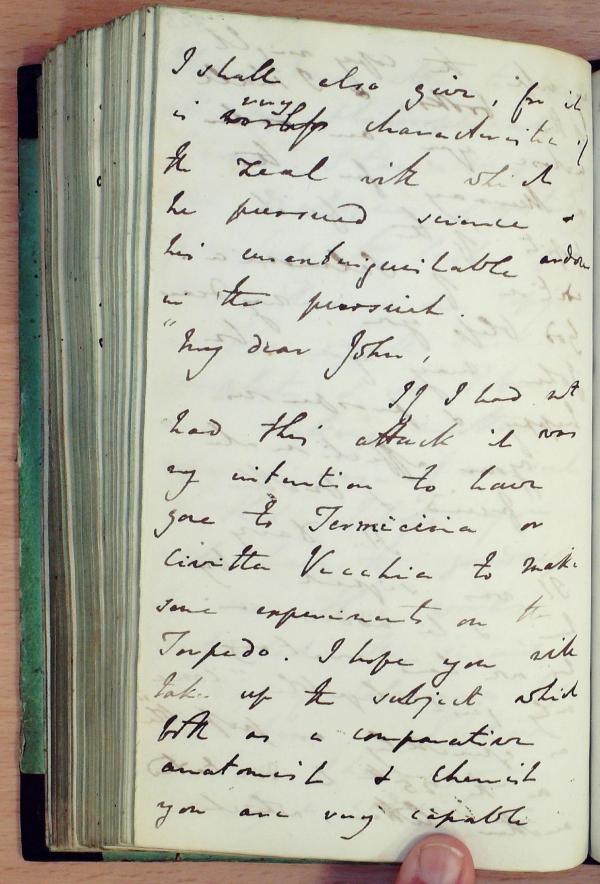 I shall also give, for it
is very characteristic of
the zeal with which
he pursued science &
his unextinguishable ardour
in the pursuit.
"My dear John,
If I had not
had this attack it was
my intention to have
gone to Termicina or
Civitta Vecchia to make
some experiments on the
Torpedo. I hope you will
take up the subject which
both as a comparative
anatomist & chemist
you are very capable